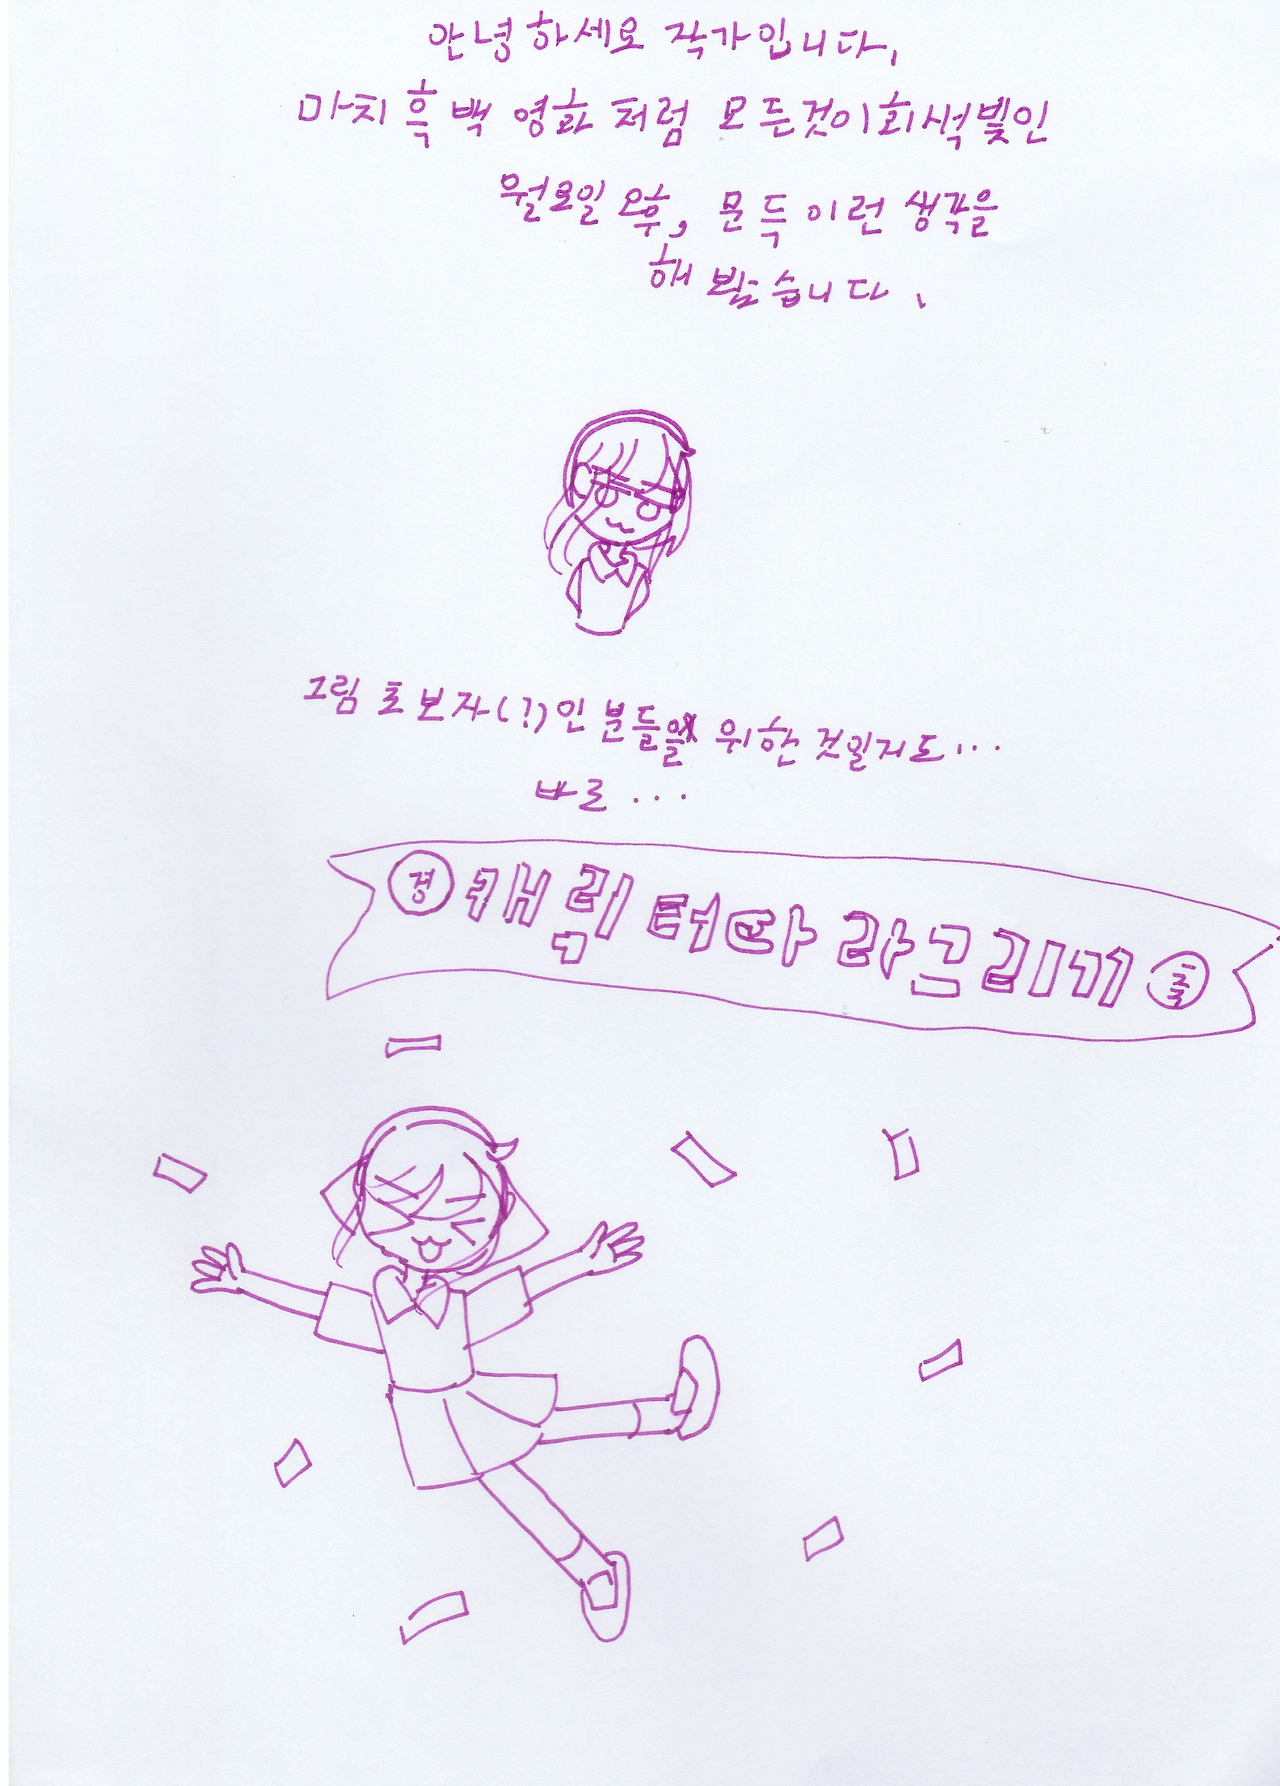 안녕하세요 작가입니다.
마치 흑백 영화 처럼 모든것이 회색빛인
월요일 오후, 문득 이런 생각을
해 봤습니다.
그림 초보자(?)인 분들을 위한 것일지도...
바로...
경 캐릭터따라그리기 축